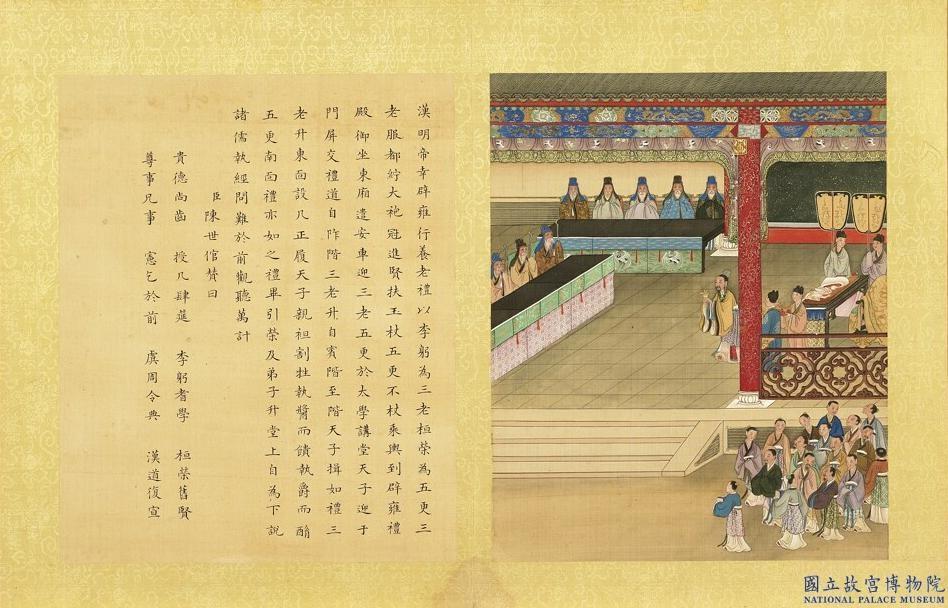 漢明帝幸辟雍行養老禮以李躬為三老桓榮為五更三
老服都紵大袍冠進賢扶玉杖五更不杖乘輿到辟雍禮
殿御坐東廂遣安車迎三老五更於太學講堂天子迎于
門屏交禮道自阼階三老升自賓階至階天子揖如禮三
老升東面設几正履天子親袒割牲執醬而饋執爵而酳
五更南面禮亦如之禮畢引榮及弟子升堂上自為下說
諸儒執經問難於前觀聽萬計
臣陳世倌贊曰
貴德尚齒 授几肆筵 李躬耆學 桓榮舊賢
尊事凡事 憲乞於前 虞周令典 漢道復宣
國立故宮博物院
NATIONAL PALACE MUSEUM